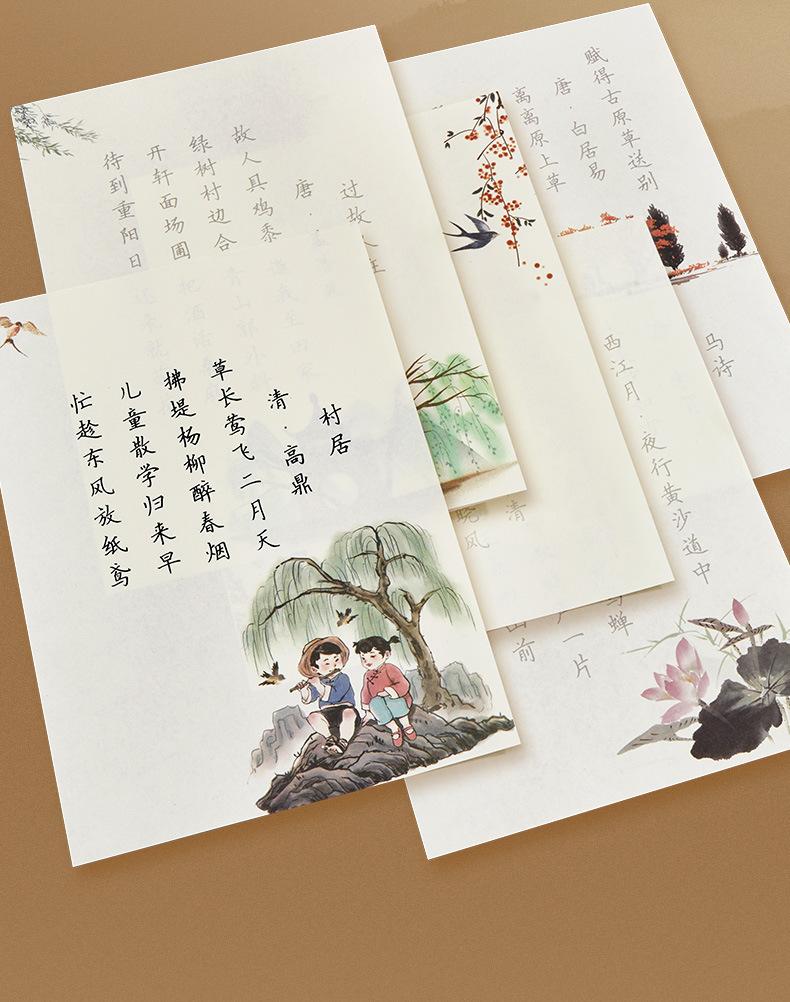 村居
清·高鼎
草长莺飞二月天
拂堤杨柳醉春烟
儿童散学归来早
忙趁东风放纸鸢
过
唐·
故人具鸡黍
绿树村边合
开轩面场圃
待到重阳日
赋得古原草送别
唐·白居易
离离原上草
马诗
西江月·夜行黄沙道中
清
蝉
一片
前